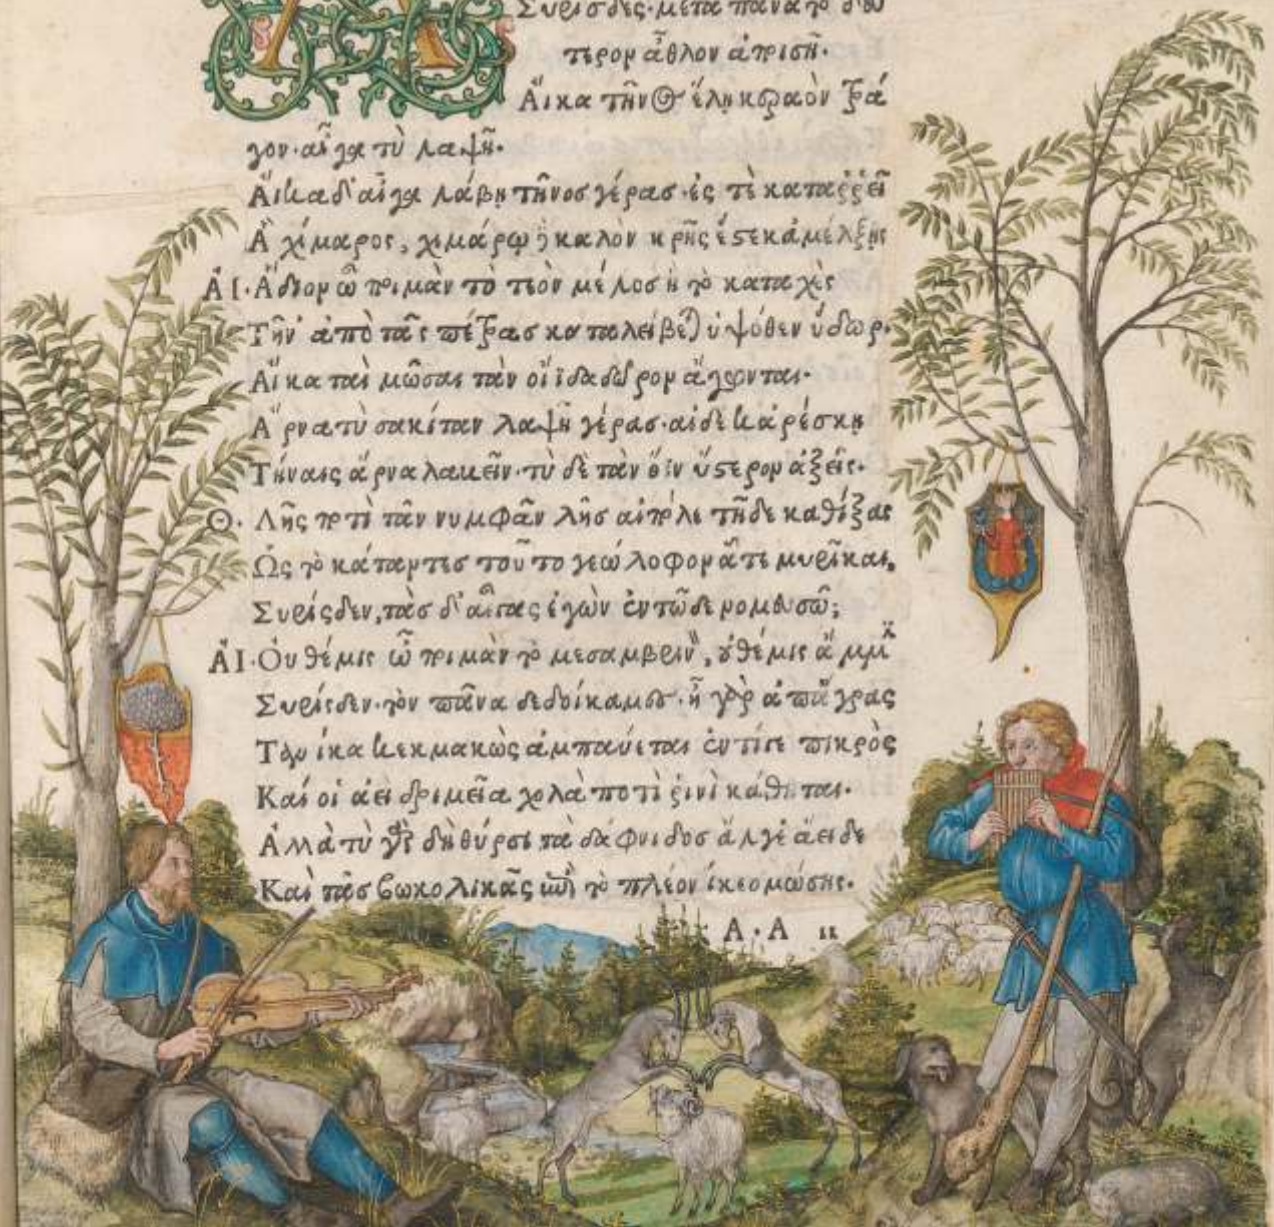 Συρίσδες· μετὰ πᾶνα τὸ δεύ
τερον ἆθλον ἀποισῇ·
Αἴκα τῆνος ἕλῃ κεραὸν τρά
γον· αἶγα τὺ λαψῇ·
Αἴκα δ' αἶγα λάβῃ τῆνος γέρας· ἐς τὲ καταῤῥεῖ
Ἁ χίμαρος, χιμάρῳ δὲ καλὸν κρῆς ἔστε κ' ἀμέλξῃς
ΑΙ· Ἅδιον ὦ ποιμὰν τὸ τεὸν μέλος ἢ τὸ καταχὲς
Τῆν' ἀπὸ τᾶς πέτρας καταλείβεται ὑψόθεν ὕδωρ.
Αἴκα ταὶ μῶσαι τὰν οἴϊδα δῶρον ἄγωνται·
Ἄρνα τὺ σακίταν λαψῇ γέρας· αἰ δέ κ' ἀρέσκῃ
Τήναις ἄρνα λαβεῖν· τὺ δὲ τὰν ὄϊν ὕστερον ἀξεῖς·
Θ· Λῇς ποτὶ τᾶν νυμφᾶν λῇς αἰπόλε τῇδε καθίξας
Ὡς τὸ κάταντες τοῦτο γεώλοφον ἅτε μυρῖκαι,
Συρίσδεν, τὰς δ' αἶγας ἐγὼν ἐν τῷδε νομευσῶ;
ΑΙ· Οὐ θέμις ὦ ποιμὰν τὸ μεσαμβρινὸν, οὐ θέμις ἄμμιν
Συρίσδεν· τὸν πᾶνα δεδοίκαμες· ἦ γὰρ ἀπ' ἄγρας
Τανίκα κεκμακὼς ἀμπαύεται ἐντί γε πικρὸς
Καί οἱ ἀεὶ δριμεῖα χολὰ ποτὶ ῥινὶ κάθηται·
Ἀλλὰ τὺ γὰρ δὴ θύρσι τὰ δάφνιδος ἄλγε' ἀείδε
Καὶ τᾶς βωκολικᾶς ἐπὶ τὸ πλέον ἵκεο μώσης·
Α·Α ιι